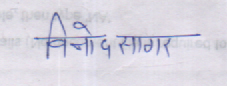 विनोद सागर